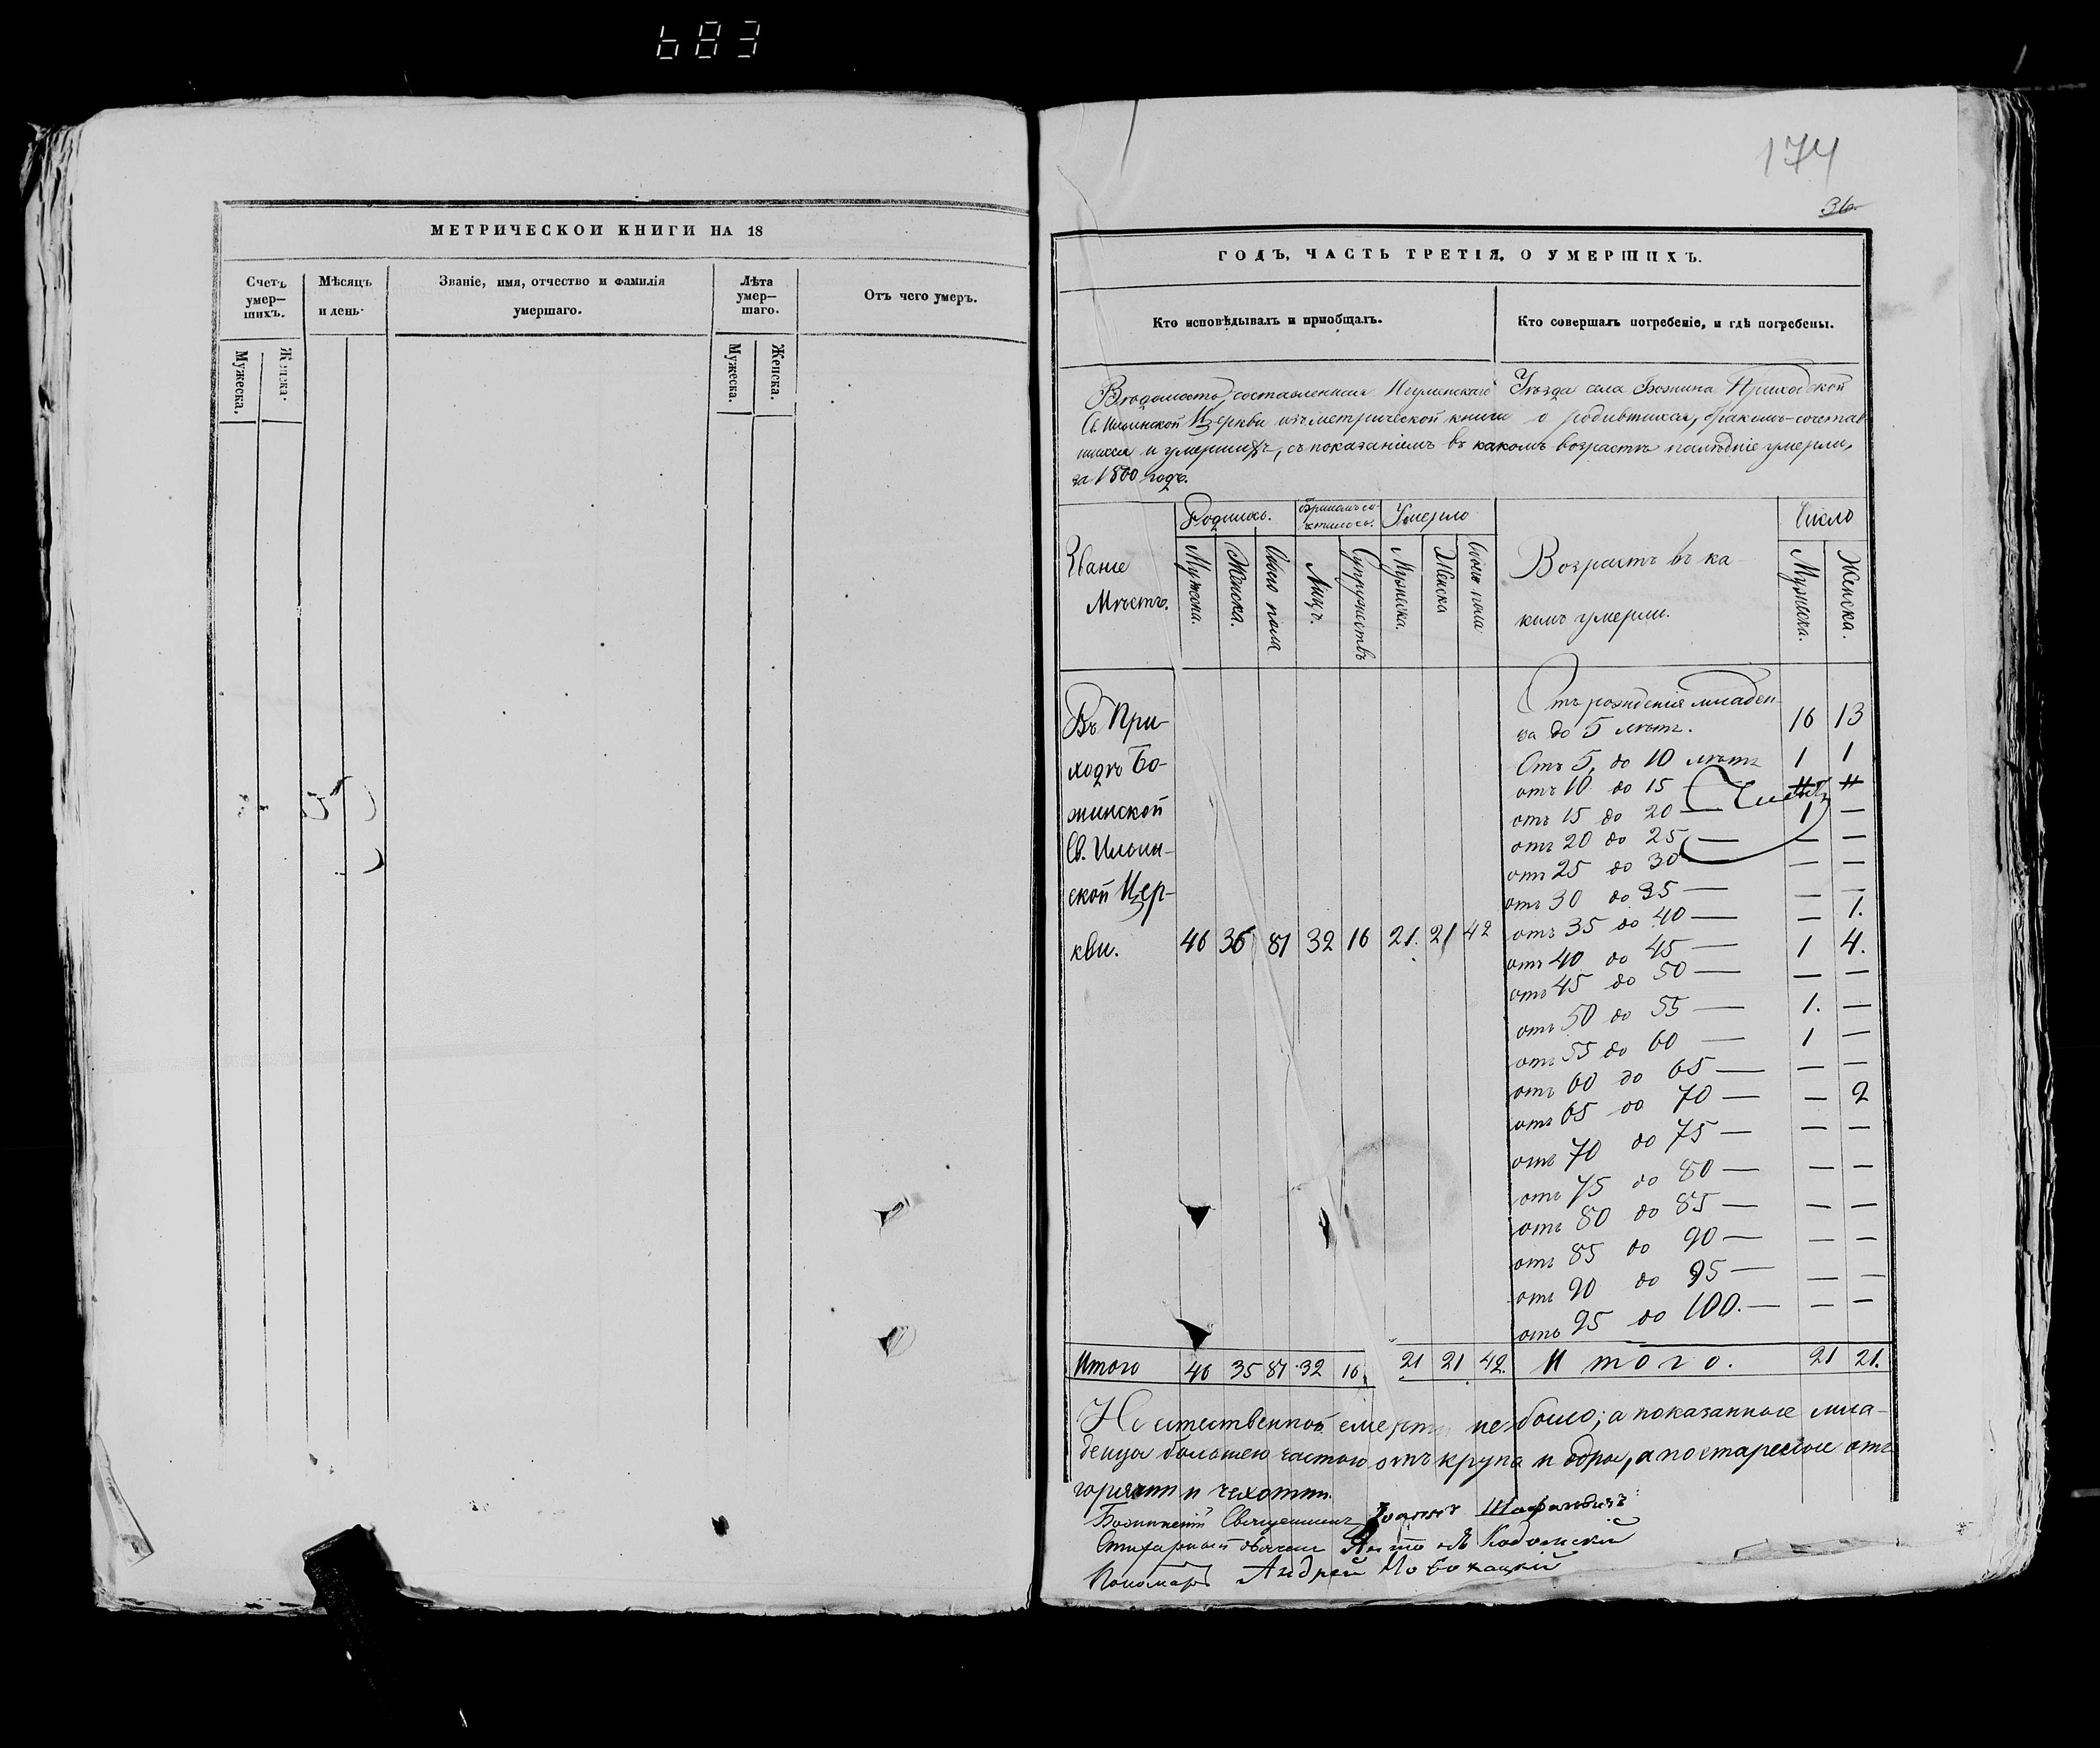 683
МЕТРИЧЕСКОЙ КНИГИ НА 18
Счетъ умер-шихъ.
Мѣсяцъ и день.
Званіе, имя, отчество и фамилія умершаго.
Лѣта умер-шаго.
Отъ чего умеръ.
Мужеска.
Женска.
Мужеска.
Женска.
174
36.
ГОДЪ, ЧАСТЬ ТРЕТІЯ, О УМЕРШИХЪ.
Кто исповѣдывалъ и пріобщалъ.
Кто совершалъ погребеніе, и гдѣ погребены.
Вѣдомость, составленная Игуменскаго Уѣзда села Божина Приходской
Св. Ильинской Церкви изъ метрической книги о родившихся, бракомъ-сочетав
шихся и умершихъ, съ показаніемъ въ какомъ возрастѣ послѣдніе умерли,
за 1860 годъ.
Званіе Мѣстъ.
Родилось.
Умерло
Возрастъ въ ка-
комъ умерли.
Число
Мужеска.
Женска.
Обоего пола
Лицъ.
Супружествъ
Мужеска.
Женска
Обоего пола
Мужеска.
Женска.
Въ При-
ходѣ Бо-
жинской
Св. Ильин-
ской Цер-
кви. 46 36 81 32 16 21. 21 42
Отъ рожденія младен-
ца до 5 лѣтъ. 16 13
Отъ 5, до 10 лѣтъ 1 1
отъ 10 до 15
отъ 15 до 20 — 1 —
отъ 20 до 25 — — —
отъ 25 до 30 — — —
отъ 30 до 35 — — —
отъ 35 до 40 — — 1.
отъ 40 до 45 — 1 4.
отъ 45 до 50 — — —
отъ 50 до 55 — 1. —
отъ 55 до 60 — 1 —
отъ 60 до 65 — — —
отъ 65 до 70 — — 2
отъ 70 до 75 — — —
отъ 75 до 80 — — —
отъ 80 до 85 — — —
отъ 85 до 90 — — —
отъ 90 до 95 — — —
отъ 95 до 100. — — —
Итого 46 35 81 32 16. 21 21 42. Итого. 21 21.
Не естественной смерти не было; а показанные мла-
денцы большею частью отъ крупа и одры, а постарелые отъ
горячки и чехотки.
Божинскій Священникъ Іоаннъ
Дьячекъ
Пономарь Андрей